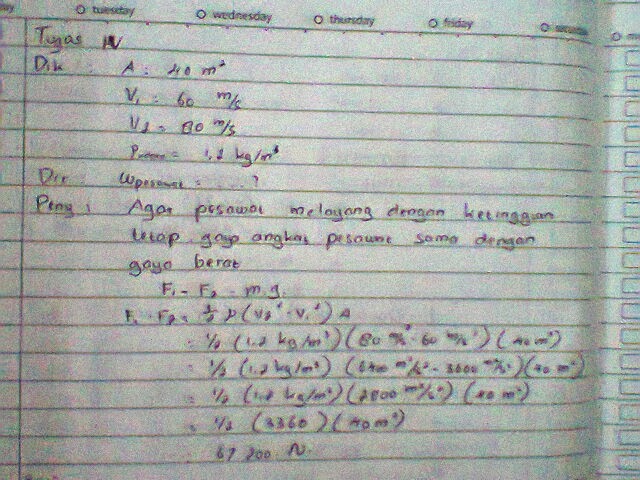 tuesday wednesday thursday friday
Tugas IV
Dik : A = 40 m²
V₁ = 60 m/s
V₂ = 80 m/s
= 1,2 kg/m³
Dit : Wpesawat = ..... ?
Peny : Agar pesawat melayang dengan ketinggian
tetap gaya angkat pesawat sama dengan
gaya berat
F₁ - F₂ = m.g.
F₁ - F₂ = ½ ρ (V₂² - V₁²) A
= ½ (1.2 kg/m³) (80 m/s² - 60 m/s²) (40 m²)
= ½ (1.2 kg/m³) (6400 m²/s² - 3600 m²/s²) (40 m²)
= ½ (1.2 kg/m³) (2800 m²/s²) (40 m²)
= ½ (3360) (40 m²)
= 67 200 N.